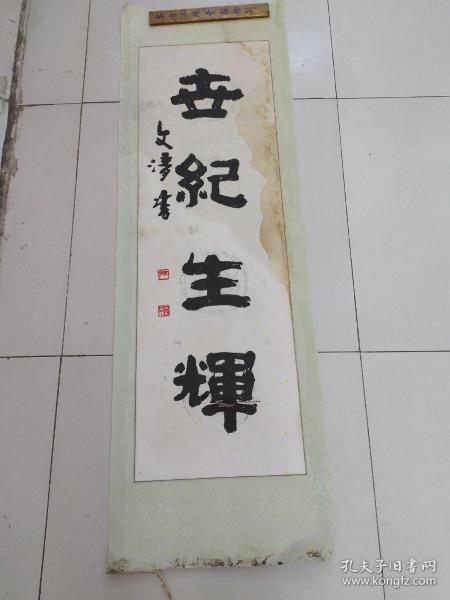 世紀生輝
文濤書
孔夫子旧书网
www.kongfz.com